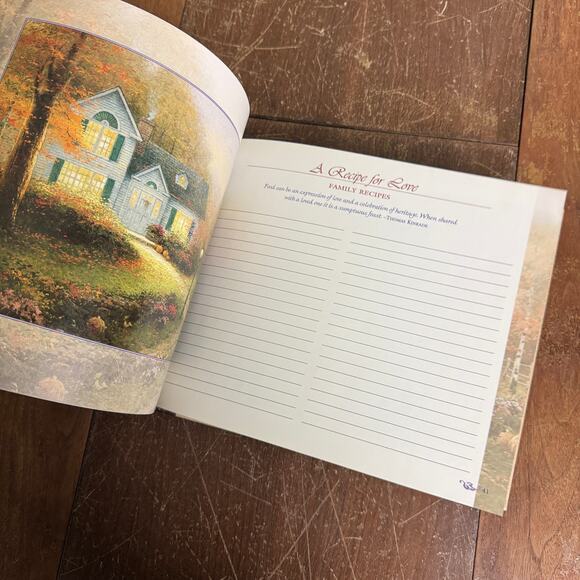 A Recipe for Love
FAMILY RECIPES
Food can be an expression of love and a celebration of heritage. When shared
with a loved one it is a sumptuous feast. -THOMAS KINKADE
41